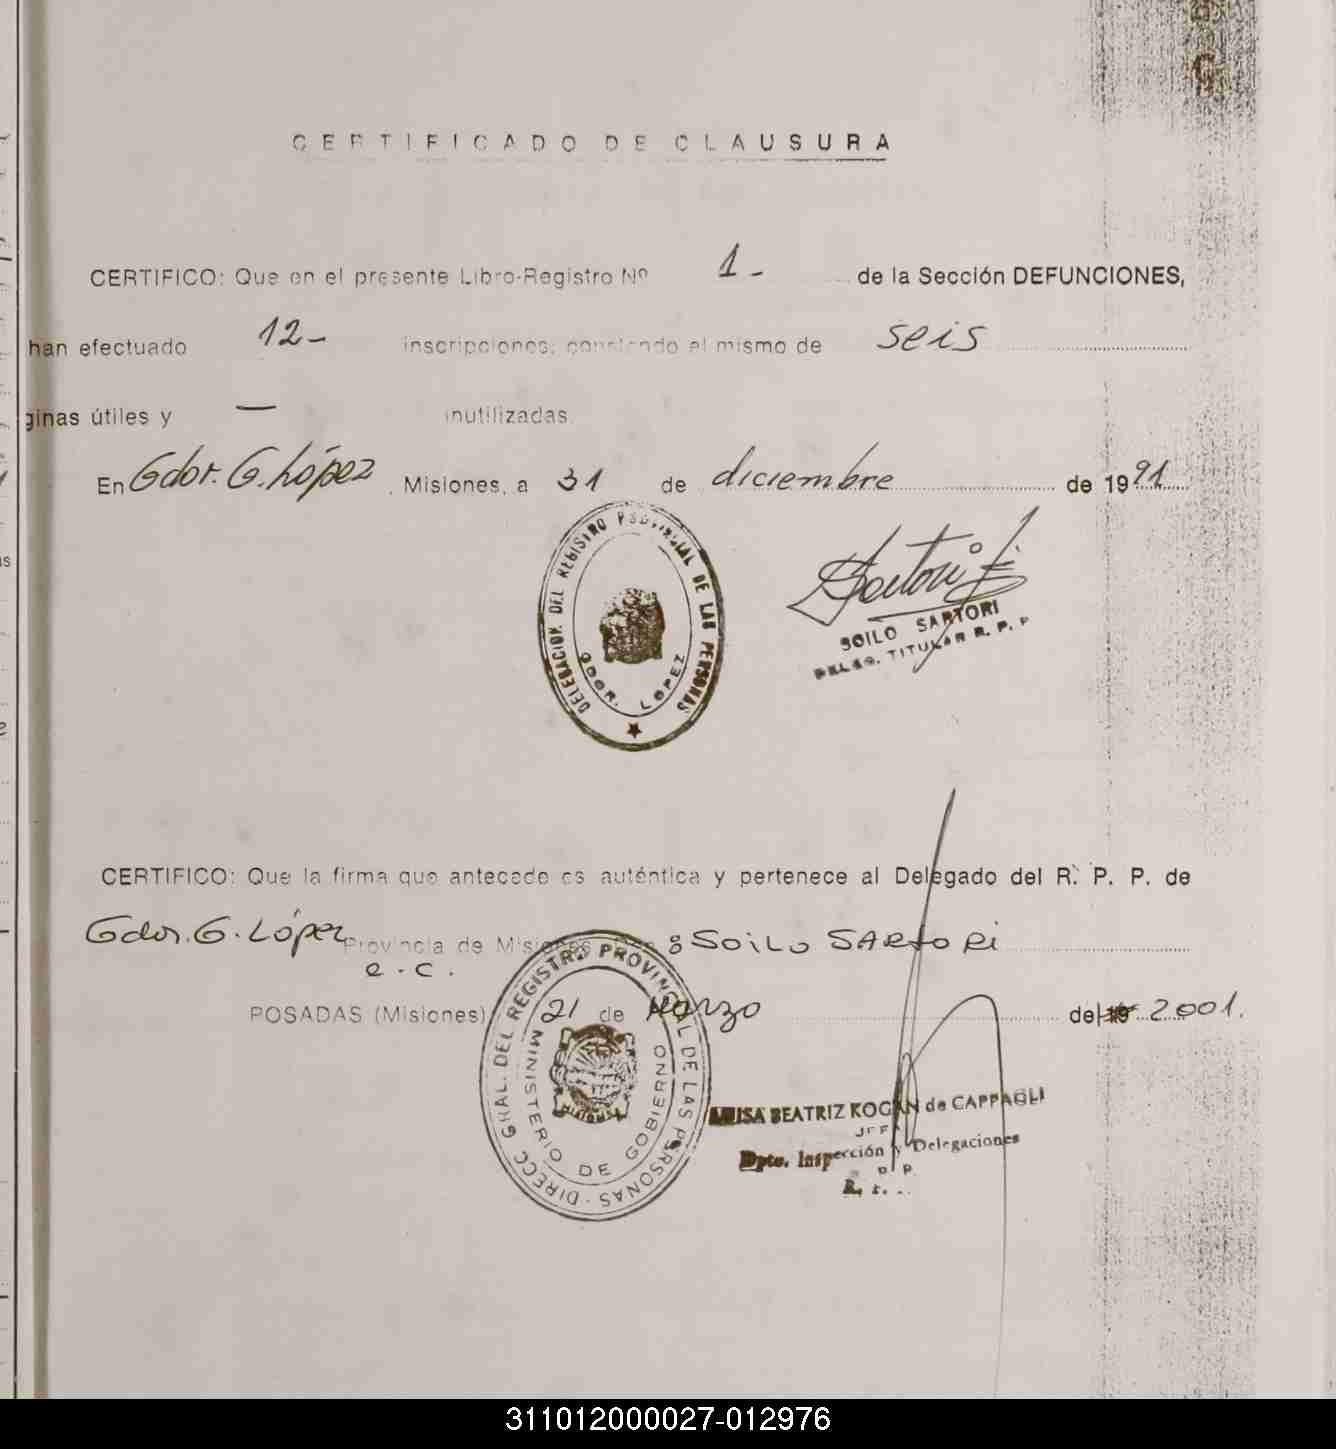 CERTIFICADO DE CLAUSURA
CERTIFICO: Que en el presente Libro-Registro Nº 1- de la Sección DEFUNCIONES,
han efectuado 12- inscripciones; constando el mismo de seis
ginas útiles y — inutilizadas.
En Gdor. G. López, Misiones, a 31 de diciembre de 1991
DELEGACION DEL REGISTRO PROVINCIAL DE LAS PERSONAS
GDOR. LOPEZ
Sartori
SOILO SARTORI
DELEG. TITULAR R. P. P
CERTIFICO: Que la firma que antecede es auténtica y pertenece al Delegado del R. P. P. de
Gdor. G. López Provincia de Misiones : SOILO SARTORI
e.c.
POSADAS (Misiones) 21 de Marzo de 19 2.001.
DIRECC. GRAL. DEL REGISTRO PROVINCIAL DE LAS PERSONAS
MINISTERIO DE GOBIERNO
LUISA BEATRIZ KOGAN de CAPPAGLI
JEF
Dpto. Inspección y Delegaciones
R.
311012000027-012976